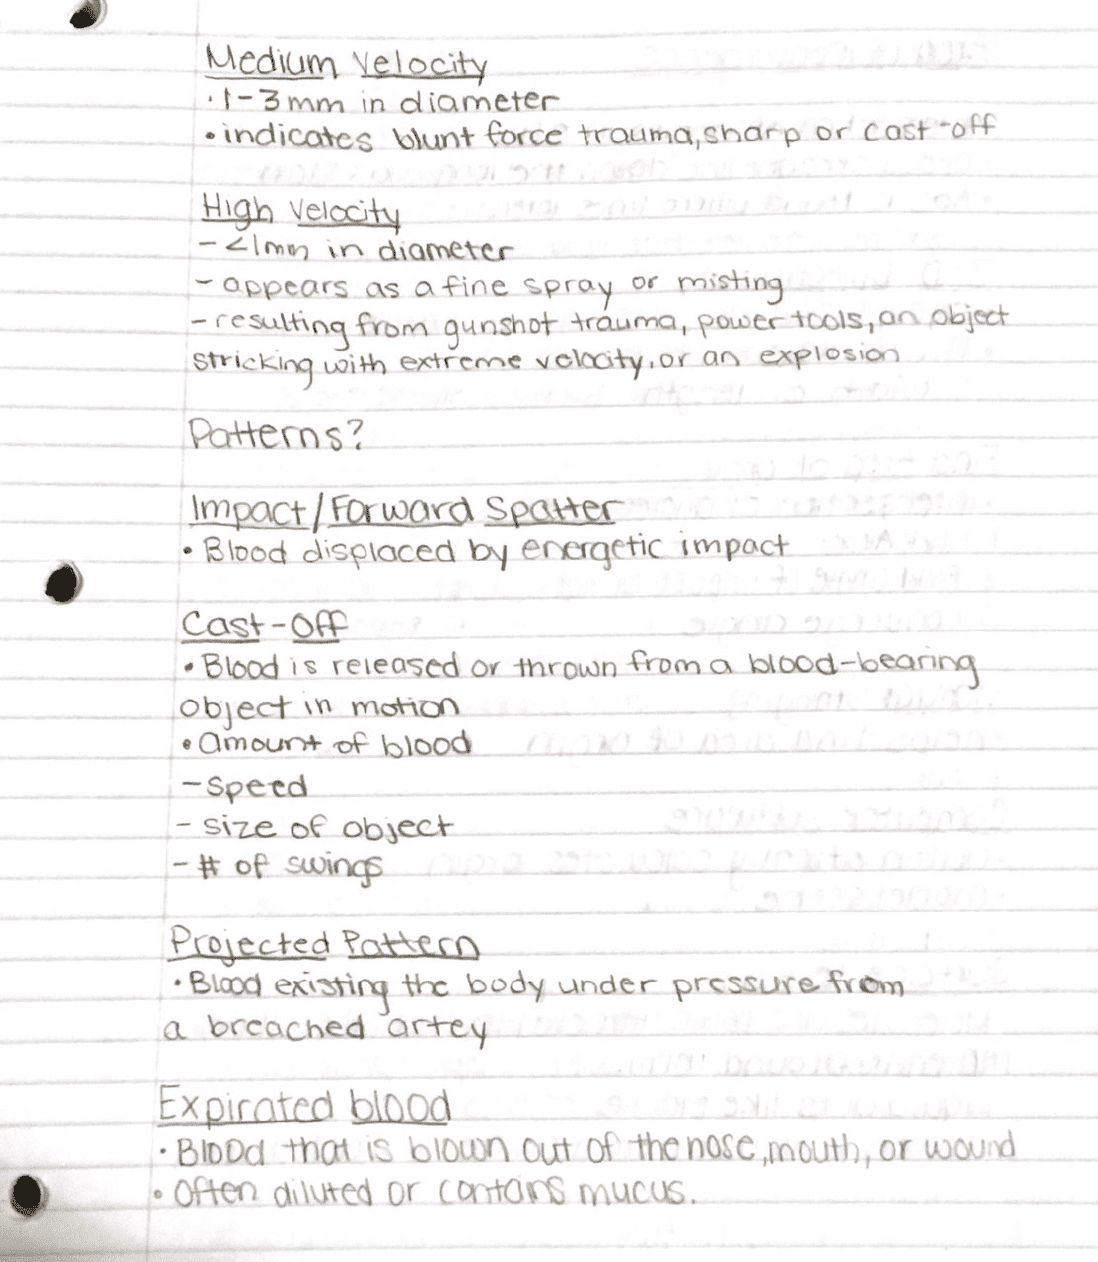 Medium Velocity
·1-3mm in diameter
•indicates blunt force trauma, sharp or cast-off
High Velocity
-<1mm in diameter
-appears as a fine spray or misting
-resulting from gunshot trauma, power tools, an object
stricking with extreme velocity, or an explosion
Patterns?
Impact/Forward Spatter
• Blood displaced by energetic impact
Cast-Off
• Blood is released or thrown from a blood-bearing
object in motion
• amount of blood
-speed
- size of object
- # of swings
Projected Pattern
· Blood existing the body under pressure from
a breached artey
Expirated blood
· Blood that is blown out of the nose, mouth, or wound
• Often diluted or contains mucus.